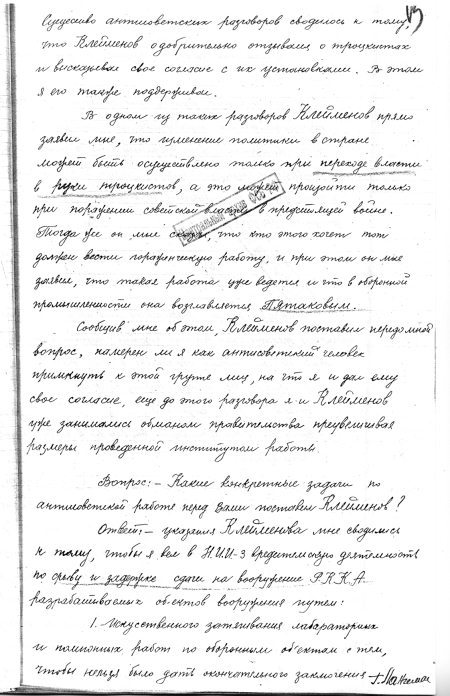 13
Существо антисоветских разговоров сводилось к тому,
что Клейменов одобрительно отзывался о троцкистах
и высказывал свое согласие с их установками. В этом
я его также поддерживал.
В одном из таких разговоров Клейменов прямо
заявил мне, что изменение политики в стране
может быть осуществлено только при переходе власти
в руки троцкистов, а это может произойти только
при поражении советской власти в предстоящей войне.
Тогда же он мне сказал, что кто этого хочет тот
должен вести горафическую работу, и при этом он мне
заявил, что такая работа уже ведется и что в оборонной
промышленности она возглавляется Пятаковым.
Сообщив мне об этом, Клейменов поставил передо мной
вопрос, намерен ли я как антисоветский человек
примкнуть к этой группе лиц, на что я и дал ему
свое согласие, еще до этого разговора я и Клейменов
уже занимались обманом правительства преувеличивая
размеры проведенной институтом работы.
Вопрос: – Какие конкретные задачи по
антисоветской работе перед Вами поставил Клейменов?
Ответ: – указания Клейменова мне сводились
к тому, чтобы я вел в Н.И.И-3 вредительскую деятельность
по срыву и задержке сдачи на вооружение Р.К.К.А.
разрабатываемых об'ектов вооружения путем:
1. Искусственного затягивания лабораторных
и полигонных работ по оборонным об'ектам с тем,
чтобы нельзя было дать окончательного заключения